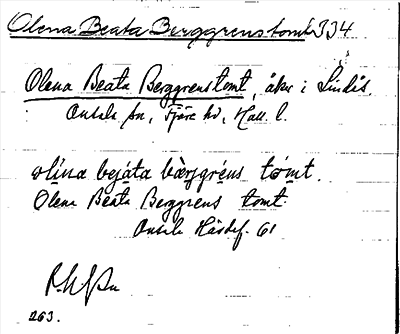 Olena Beata Berggrenstomt 334
Olena Beata Berggrenstomt, åker i Lindås.
Onsala sn, Fjäre hd, Hall. l.
olína bejáta bærjgréns tómt.
Olena Beata Berggrens tomt.
Onsala Härdef. 61
263.